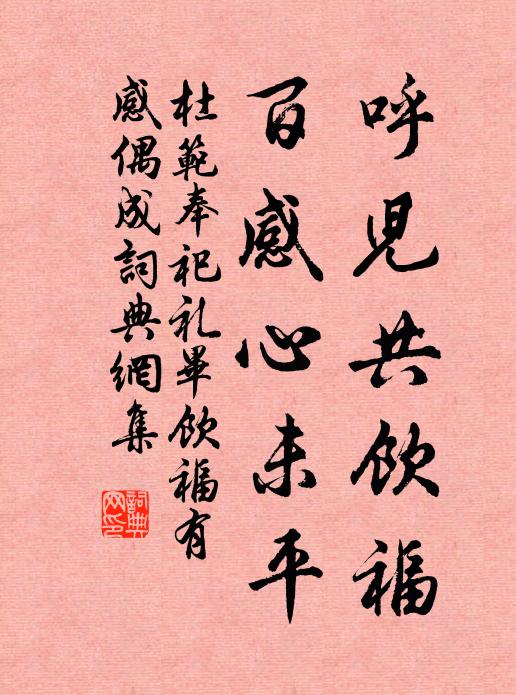 呼児共飲福
百感心未平
杜範奉祀礼畢飲福有
感偶成詞典網集
詞典
网印